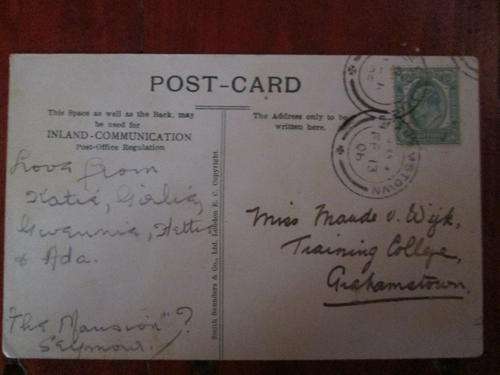 POST-CARD
This Space as well as the Back, may
be used for
INLAND-COMMUNICATION
Post-Office Regulation
The Address only to be
written here.
Love from
Katie,
&
Hettie
& Ada.
"The Mansion"?
Seymour.
Smith Saunders & Co., Ltd. London E. C. Copyright.
Miss Maude v. Wijk,
Training College,
Grahamstown.
13
06